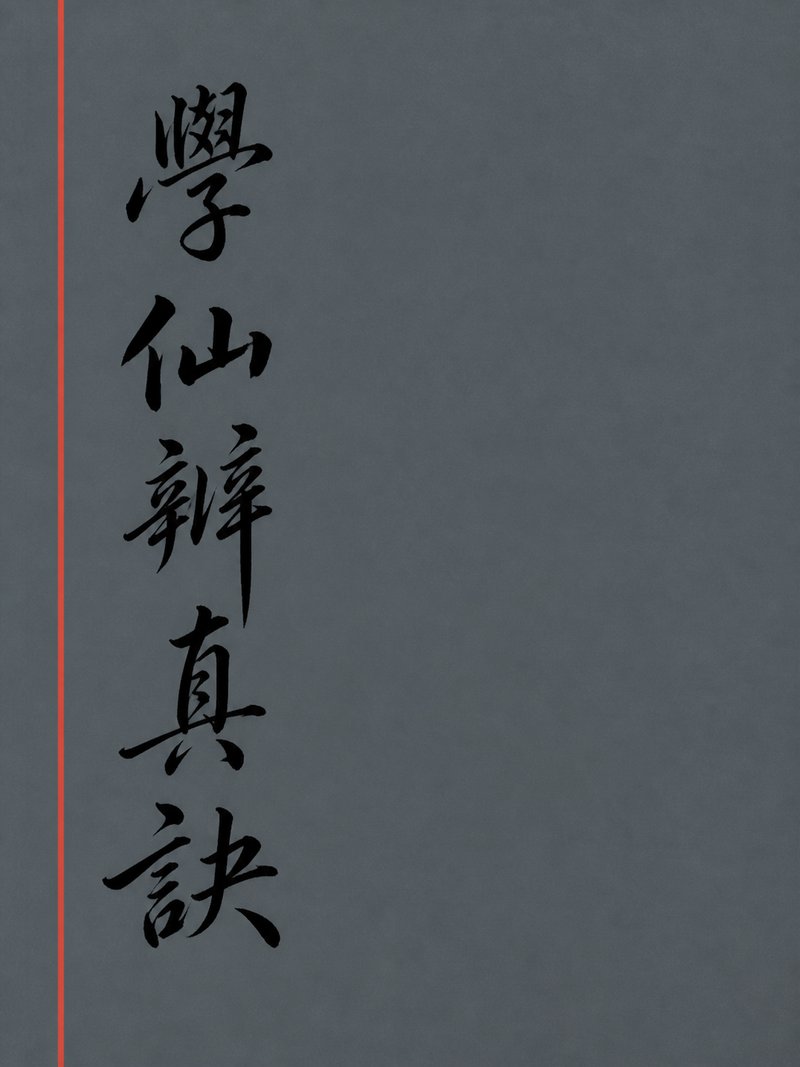 學仙辨真訣